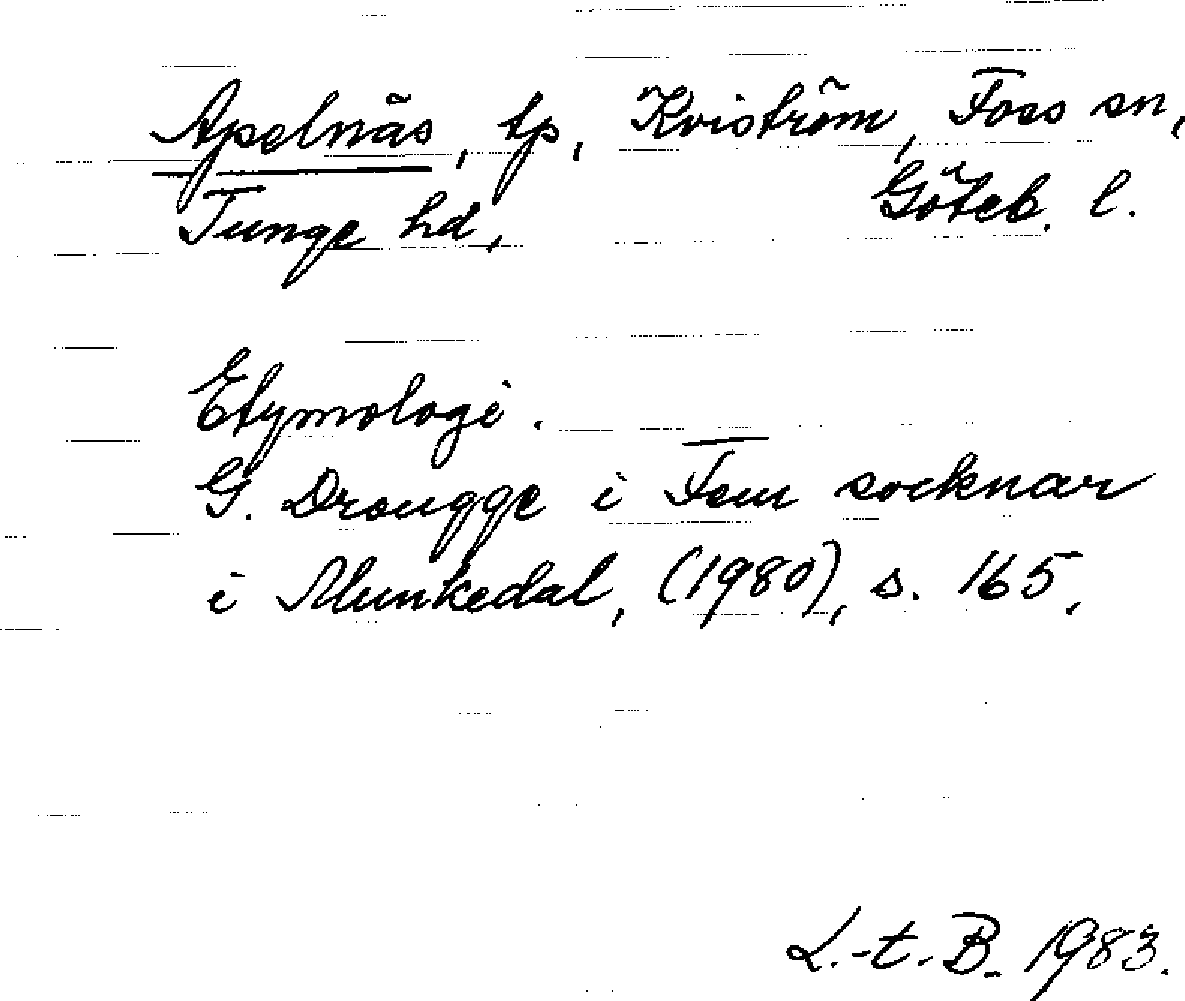 Apelnäs, tp, Kviström, Foss sn,
Tunge hd, Göteb. l.
Etymologi.
G. Drougge i Fem socknar
i Munkedal, (1980), s. 165.
L.-t. B. 1983.